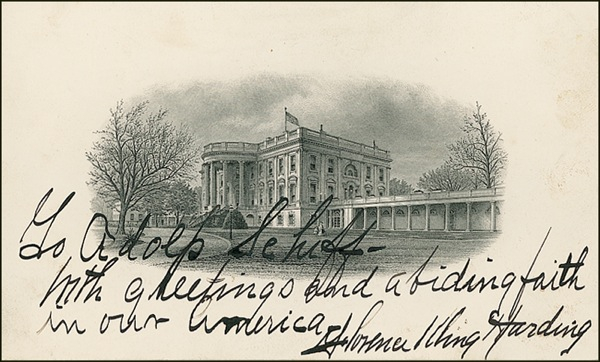 To Adolph Schiff-
With greetings and abiding faith
in our America,
Florence Kling Harding